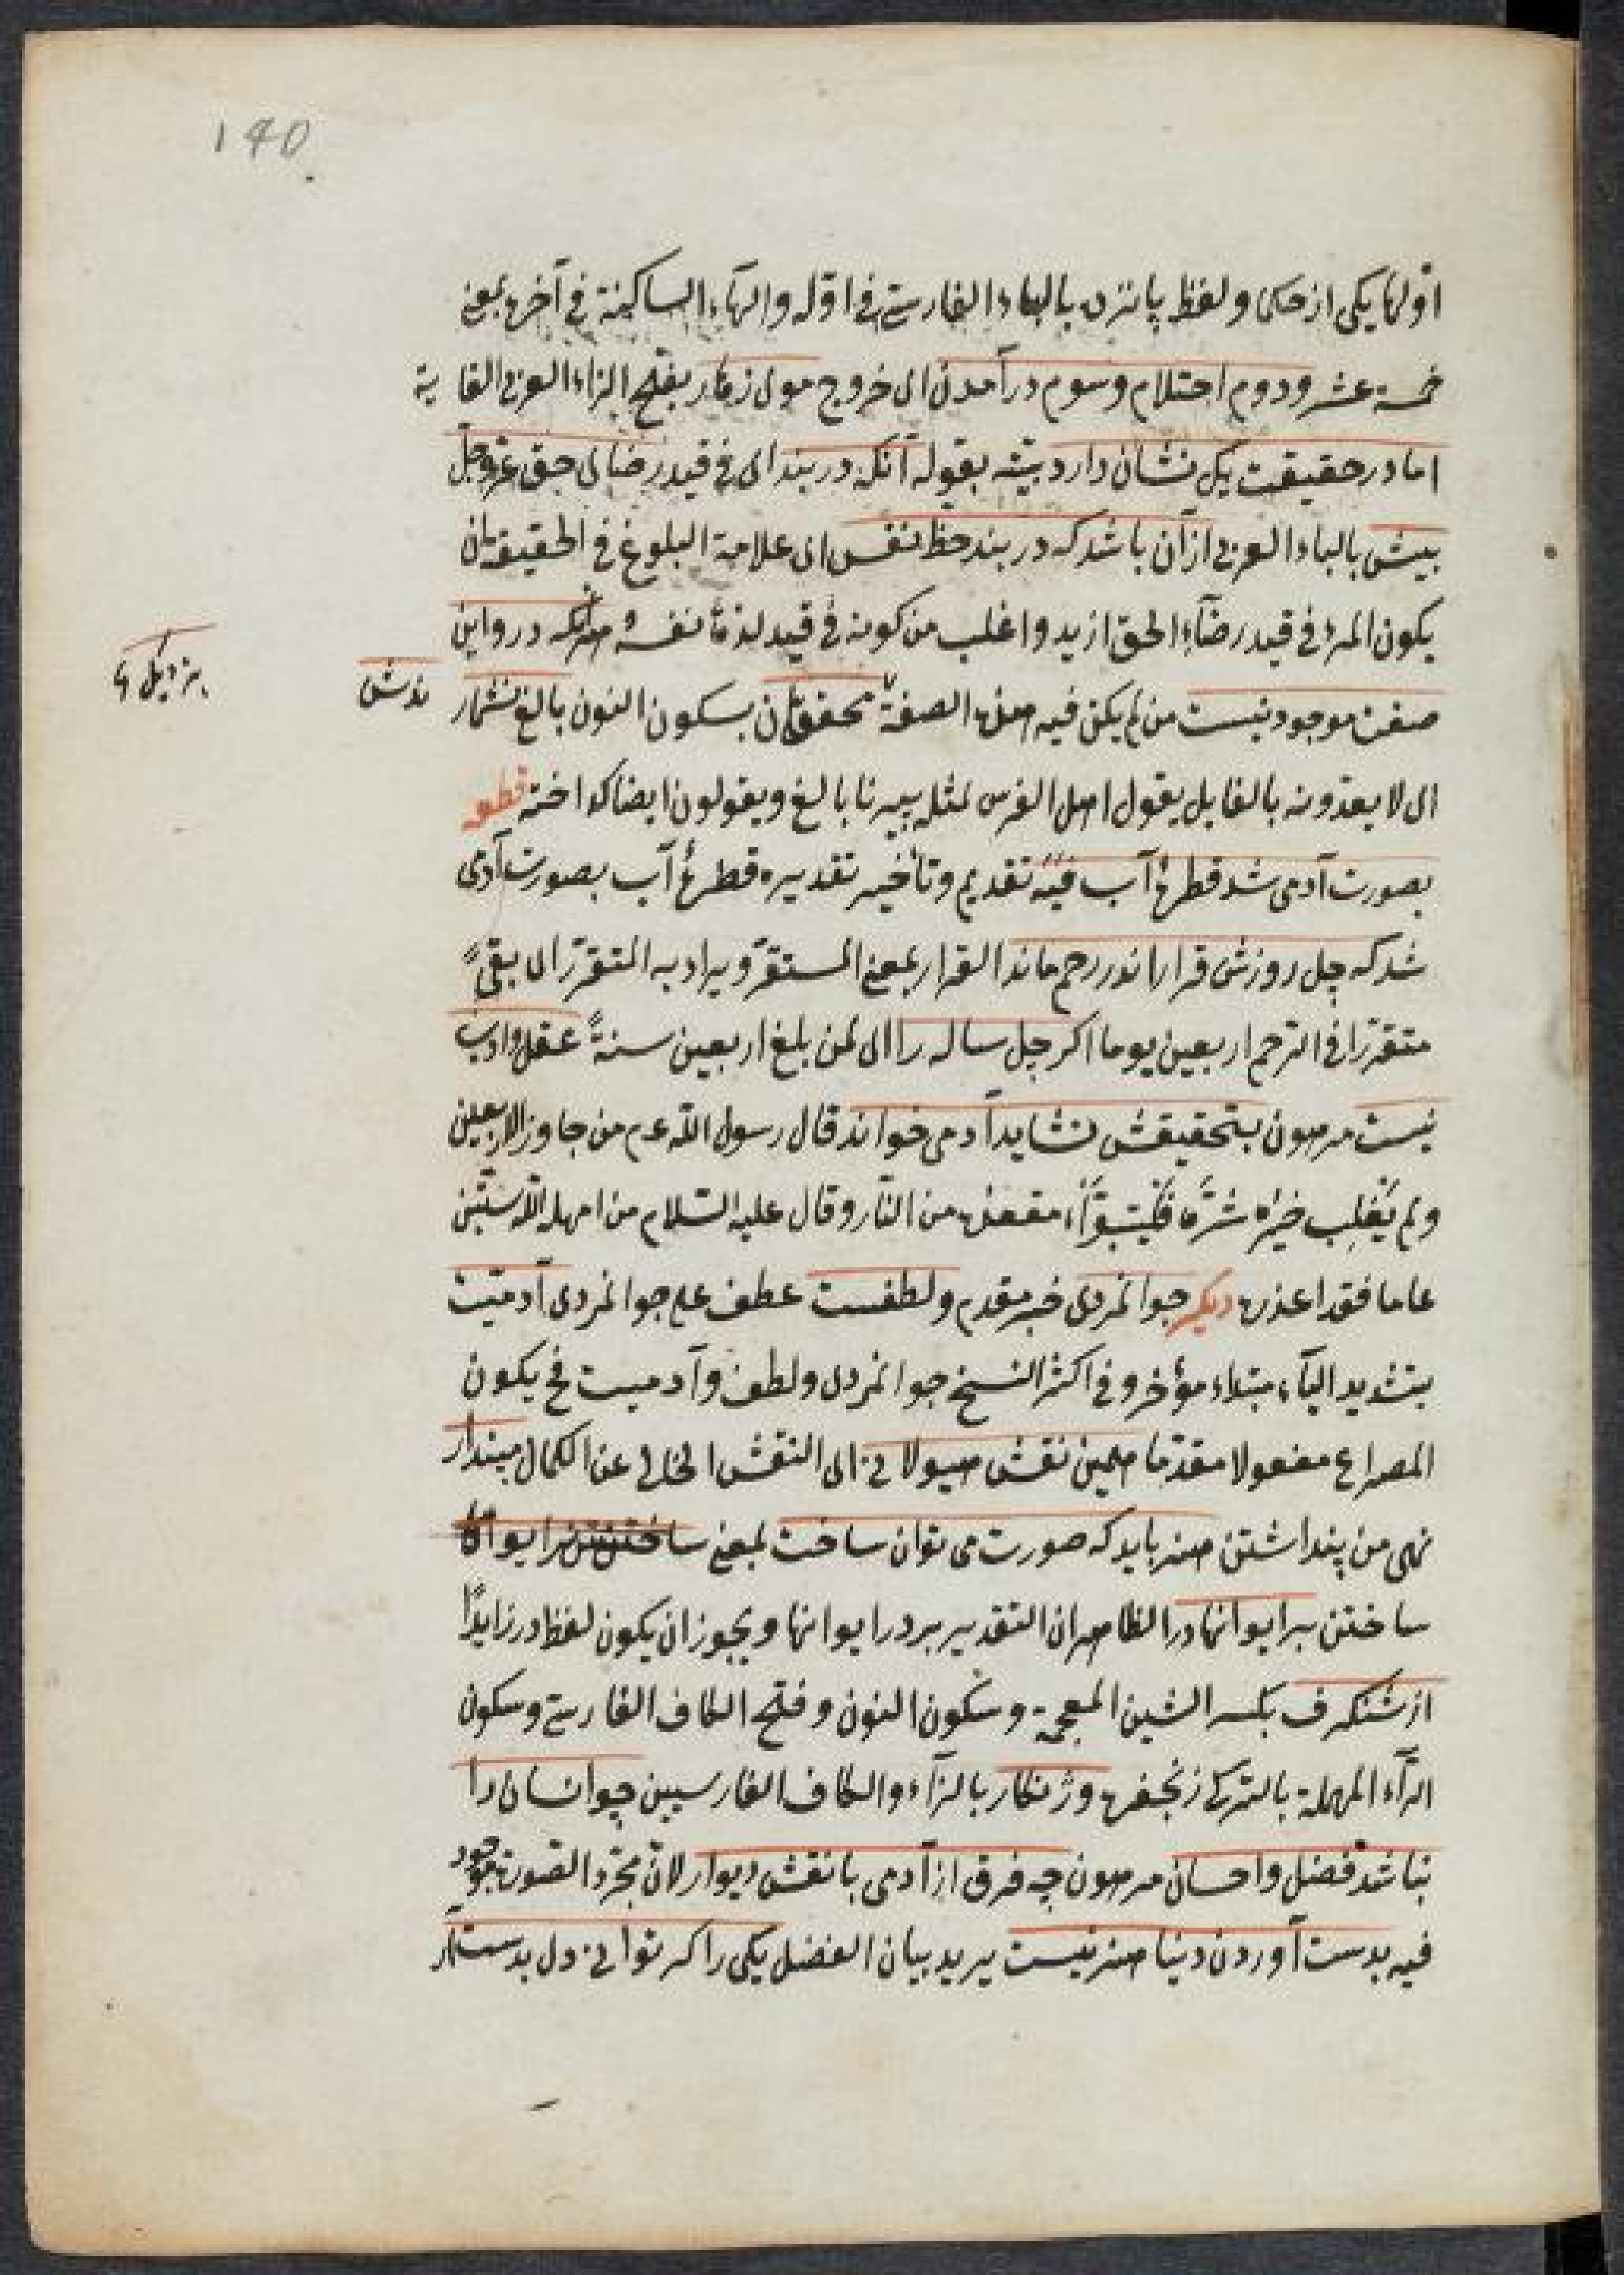 ۱۴۵
اولها یکی از حکما ولفظ پانزده بالباء الفارسیة فی اوله والهاء الساکنة فی آخره بمعنی
خمسة عشر ودوم احتلام وسوم درآمدن ای خروج موی زهار بفتح الزاء العربی العانة
اما در حقیقت یک نشان دارد بینه بقوله آنکه در بند ای فی قید رضای حق عز وجل
بیش بالباء العربی از آن باشد که در بند حظ نفس ای علامة البلوغ فی الحقیقة ان
یکون المرء فی قید رضاء الحق ازید واغلب من کونه فی قید لذة نفسه هر آنکه درو این
صفت موجود نیست من لم یکن فیه هذه الصفة محققان بسکون النون بالغ نشمار ندش
بنزدیک
ای لا یعدونه بالغا بل یقول اهل الفرس لمثله پیر نابالغ ویقولون ایضا کدا خته قطعه
بصورت آدمی شد قطرۀ آب فیه تقدیم وتأخیر تقدیره قطرۀ آب بصورت آدمی
شد که چل روزش قرار اندر رحم ماند القرار بمعنی المستقر ویراد به المتقرر ای بقی
متقررا فی الرحم اربعین یوما اکر چل ساله را ای لمن بلغ اربعین سنةً عقل وادب
نیست مرهون بتحقیقش نشاید آدمی خواند قال رسول الله عم من جاوز الاربعین
ولم یَغلِب خیرُه شرَّه فلیتبوّأ مقعده من النار وقال علیه السلام من امهله الله ستین
عاما فقد اعذره دیکر جوانمردی خبر مقدم ولطفست عطف علی جوانمردی آدمیت
بتشدید الیاء مبتداء مؤخر وفی اکثر النسخ جوانمردی ولطف وآدمیت فح یکون
المصراع مفعولا مقدما همین نقش هیولانی ای النقش الخالی عن الکمال مپندار
نهی من پنداشتن هنر باید که صورت می توان ساخت بمعنی ساختن
ساختن بر ایوانها در الظاهر ان التقدیر بر در ایوانها ویجوز ان یکون لفظ در زایدًا
از شنکرف بکسر الشین المعجمة وسکون النون وفتح الکاف الفارسیة وسکون
الراء المهملة بالترکی زنجفره وژنکار بالزاء والکاف الفارسیین چو انسان را
نباشد فضل واحسان مرهون چه فرق از آدمی با نقش دیوار لان مجرد الصورة موجود
فیه بدست آوردن دنیا هنر نیست یرید بیان الفضل یکی را کر توانی دل بدست آر